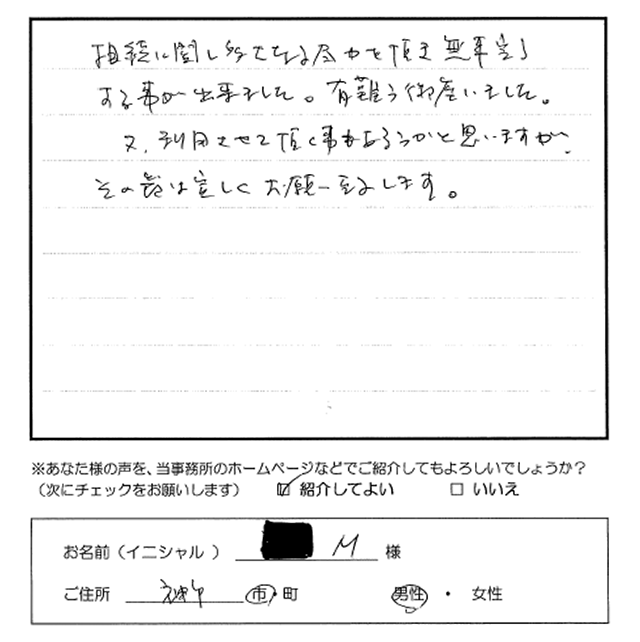 相続に関し多大なる尽力を頂き無事完了
する事が出来ました。有難う御座いました。
又、利用させて頂く事もあろうかと思いますが、
その節は宜しくお願い致します。
※あなた様の声を、当事務所のホームページなどでご紹介してもよろしいでしょうか？
（次にチェックをお願いします） ☑ 紹介してよい □ いいえ
お名前（イニシャル ） M 様
ご住所 市・町 男性 ・ 女性